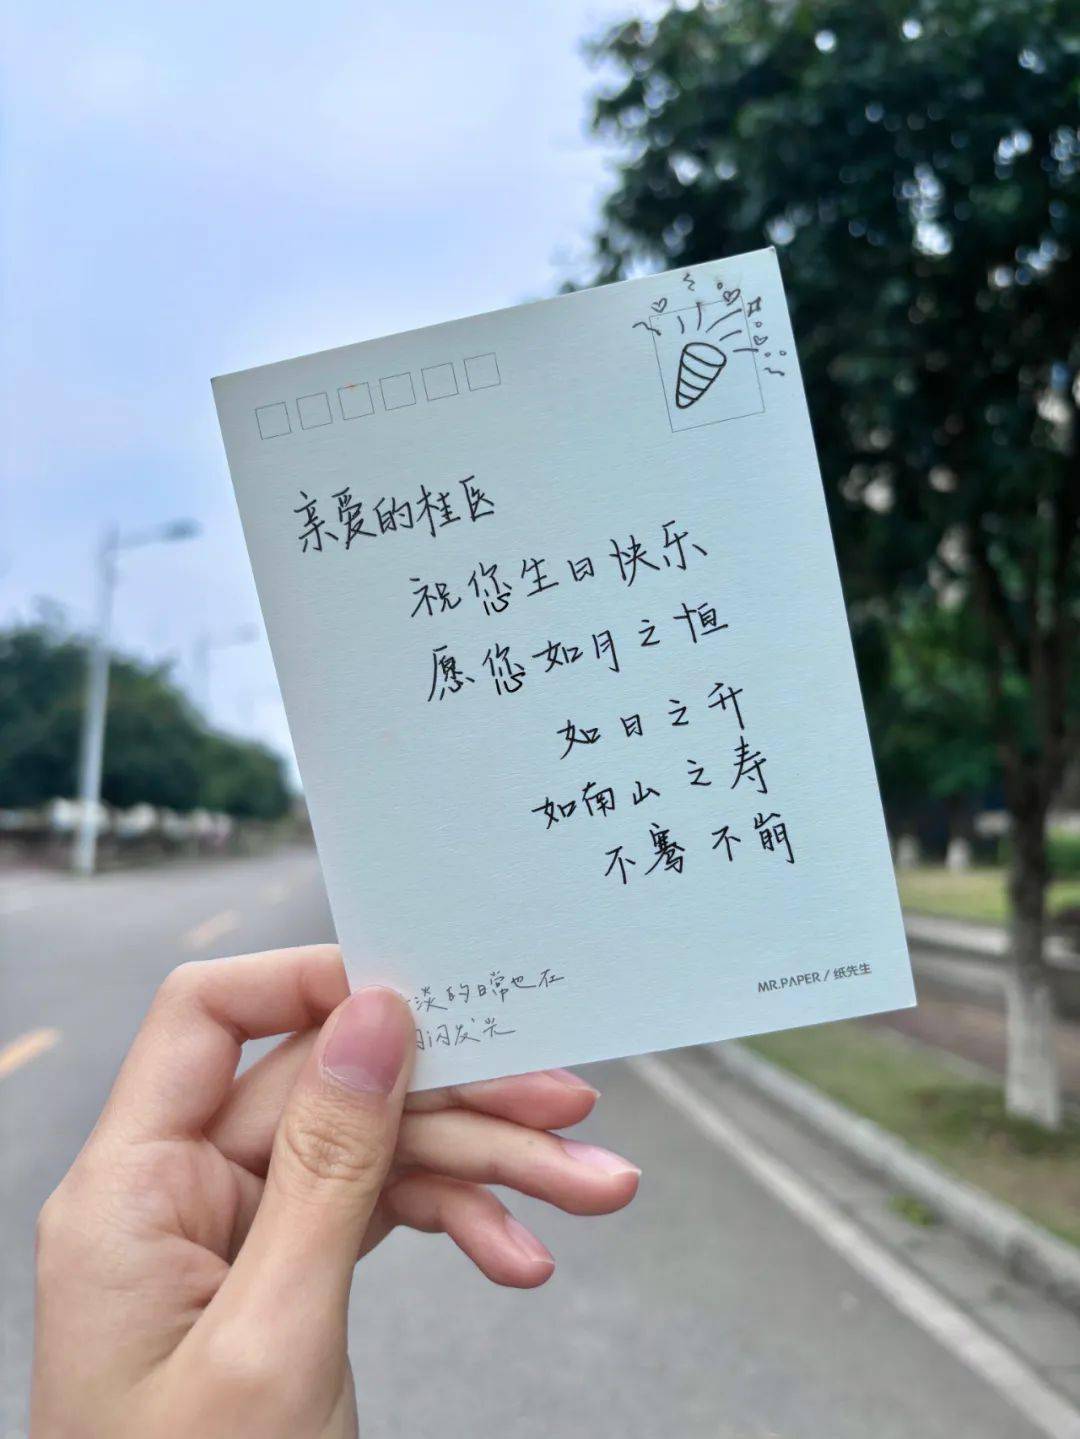 亲爱的桂医
祝您生日快乐
愿您如月之恒
如日之升
如南山之寿
不骞不崩
淡的日常也在
闪发光
MR.PAPER / 纸先生